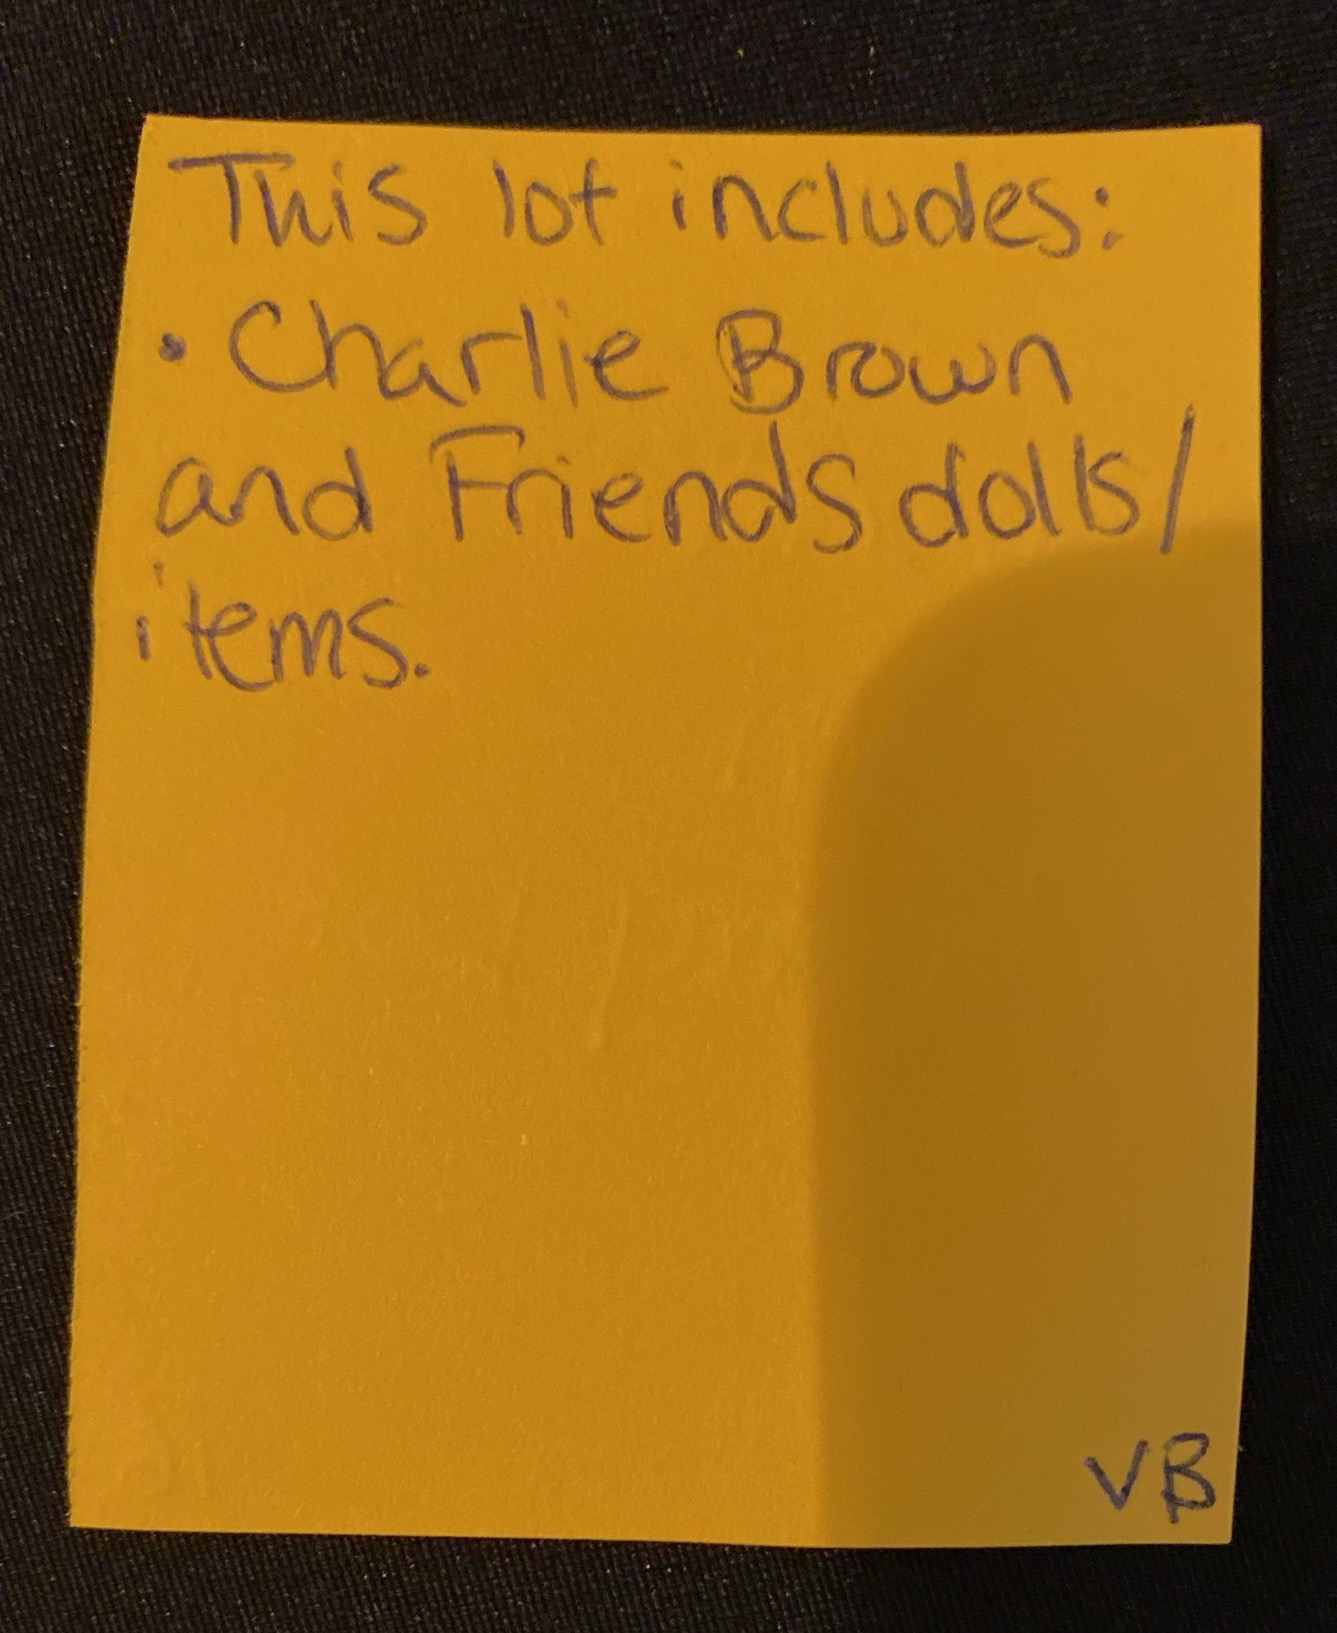 This lot includes:
• Charlie Brown
and Friends dolls/
items.
VB